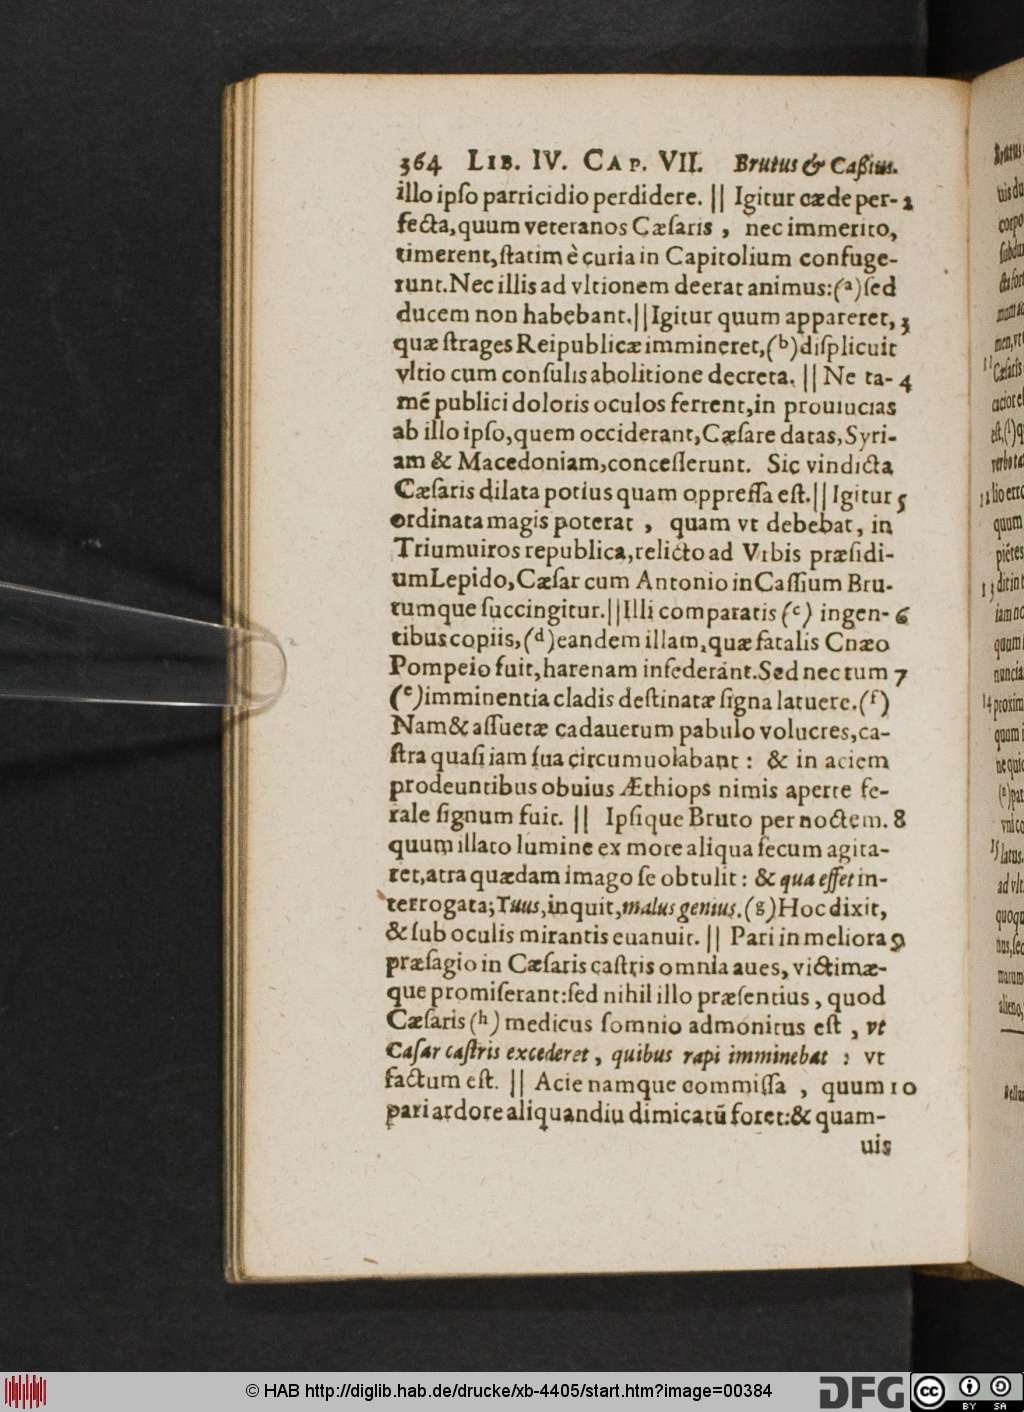 364 LIB. IV. CAP. VII. Brutus & Caßius.
illo ipſo parricidio perdidere. || Igitur cæde per- 2
fecta, quum veteranos Cæſaris, nec immerito,
timerent, ſtatim è curia in Capitolium confuge-
runt. Nec illis ad vltionem deerat animus: (a) ſed
ducem non habebant. || Igitur quum appareret, 3
quæ ſtrages Reipublicæ immineret, (b) diſplicuit
vltio cum conſulis abolitione decreta. || Ne ta- 4
mé publici doloris oculos ferrent, in prouincias
ab illo ipſo, quem occiderant, Cæſare datas, Syri-
am & Macedoniam, conceſſerunt. Sic vindicta
Cæſaris dilata potius quam oppreſſa eſt. || Igitur 5
ordinata magis poterat, quam vt debebat, in
Triumuiros republica, relicto ad Vrbis præſidi-
um Lepido, Cæſar cum Antonio in Caſſium Bru-
tumque ſuccingitur. || Illi comparatis (c) ingen- 6
tibus copiis, (d) eandem illam, quæ fatalis Cnæo
Pompeio fuit, harenam inſederánt. Sed nec tum 7
(e) imminentia cladis deſtinatæ ſigna latuere. (f)
Nam & aſſuetæ cadauerum pabulo volucres, ca-
ſtra quaſi iam ſua circumuolabant: & in aciem
prodeuntibus obuius Æthiops nimis aperte fe-
rale ſignum fuit. || Ipſique Bruto per noctem. 8
quum illato lumine ex more aliqua ſecum agita-
ret, atra quædam imago ſe obtulit: & qua eſſet in-
terrogata; Tuus, inquit, malus genius. (g) Hoc dixit,
& ſub oculis mirantis euanuit. || Pari in meliora 9
præſagio in Cæſaris caſtris omnia aues, victimæ-
que promiſerant: ſed nihil illo præſentius, quod
Cæſaris (h) medicus ſomnio admonitus eſt, vt
Caſar caſtris excederet, quibus rapi imminebat: vt
factum eſt. || Acie namque commiſſa, quum 10
pari ardore aliquandiu dimicatũ foret: & quam-
uis
Brutus
tuis du
corpo
ſubdu
cta for
mam ac
men, vt
11 Cæſaris
cacior e
eſt, (i) q
verbo ta
12 lio erro
quum
piétes
13 dit in t
iam no
quum
nuncia
14 proxim
quam i
ne quic
(n) pat
vni co
15 latus.
ad vlt
quoqu
nus, ſec
marum
alieno,
Bellum
© HAB http://diglib.hab.de/drucke/xb-4405/start.htm?image=00384
DFG
cc BY SA